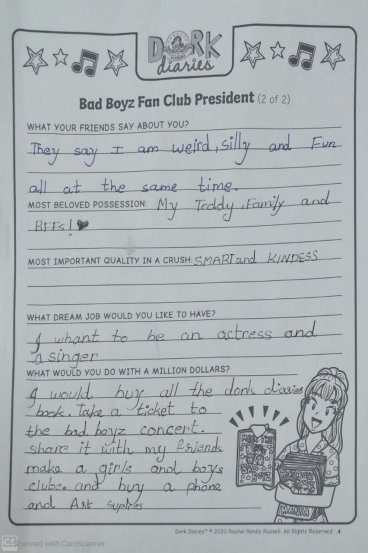 DORK
diaries
Bad Boyz Fan Club President (2 of 2)
WHAT YOUR FRIENDS SAY ABOUT YOU?
They say I am weird, silly and Fun
all at the same time.
MOST BELOVED POSSESSION: My Teddy, Family and
BFFs!
MOST IMPORTANT QUALITY IN A CRUSH: SMARt and KINDESS
WHAT DREAM JOB WOULD YOU LIKE TO HAVE?
I whant to be an actress and
a singer
WHAT WOULD YOU DO WITH A MILLION DOLLARS?
I would buy all the dork diaries
book. Take a ticket to
the bad boyz concert.
share it with my friends
make a girls and boys
clube. and buy a phone
and Art suplies
Dork Diaries™ © 2020 Rachel Renée Russell. All Rights Reserved. 4
CS Scanned with CamScanner